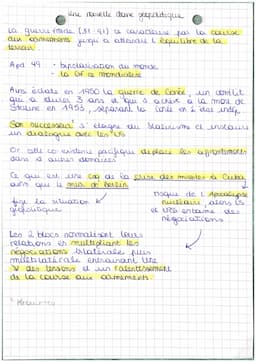 une nouvelle donne géopolitique
La guerre froide (51-91) se caractérise par la course
aux armements jusqu'à atteindre l'équilibre de la
terreur.
Apd 49 • bipolarisation du monde
• la GF se mondialise
Ainsi éclate en 1950 la guerre de Corée, un conflit
qui a duré 3 ans et qui s'achève à la mort de
Staline en 1953, séparant la Corée en 2 états indép.
Son successeur s'éloigne du Stalinisme et instaure
un dialogue avec les US
Or cette co existence pacifique déplace les affrontements
dans d'autres domaines
Ce qui est une csq de la crise des missiles à Cuba,
ainsi que le mur de Berlin
fige la situation
géopolitique
risque de l'Apocalypse
nucléaire, alors US
et URSS entament des
négociations
Les 2 blocs normalisent leurs
relations en multipliant les
négociations bilatérales puis
multilatérales entraînant une
des tensions et un ralentissement
de la course aux armements